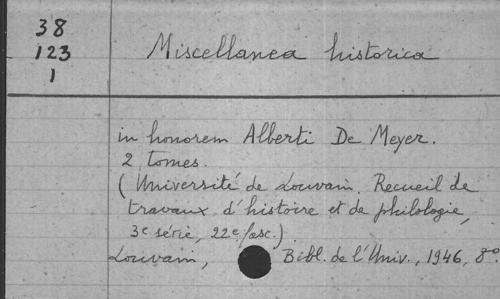 38
123
1
Miscellanea historica
in honorem Alberti De Meyer.
2 tomes.
(Université de Louvain. Recueil de
travaux d'histoire et de philologie,
3e série, 22e fasc.)
Louvain, Bibl. de l'Univ., 1946, 8o.